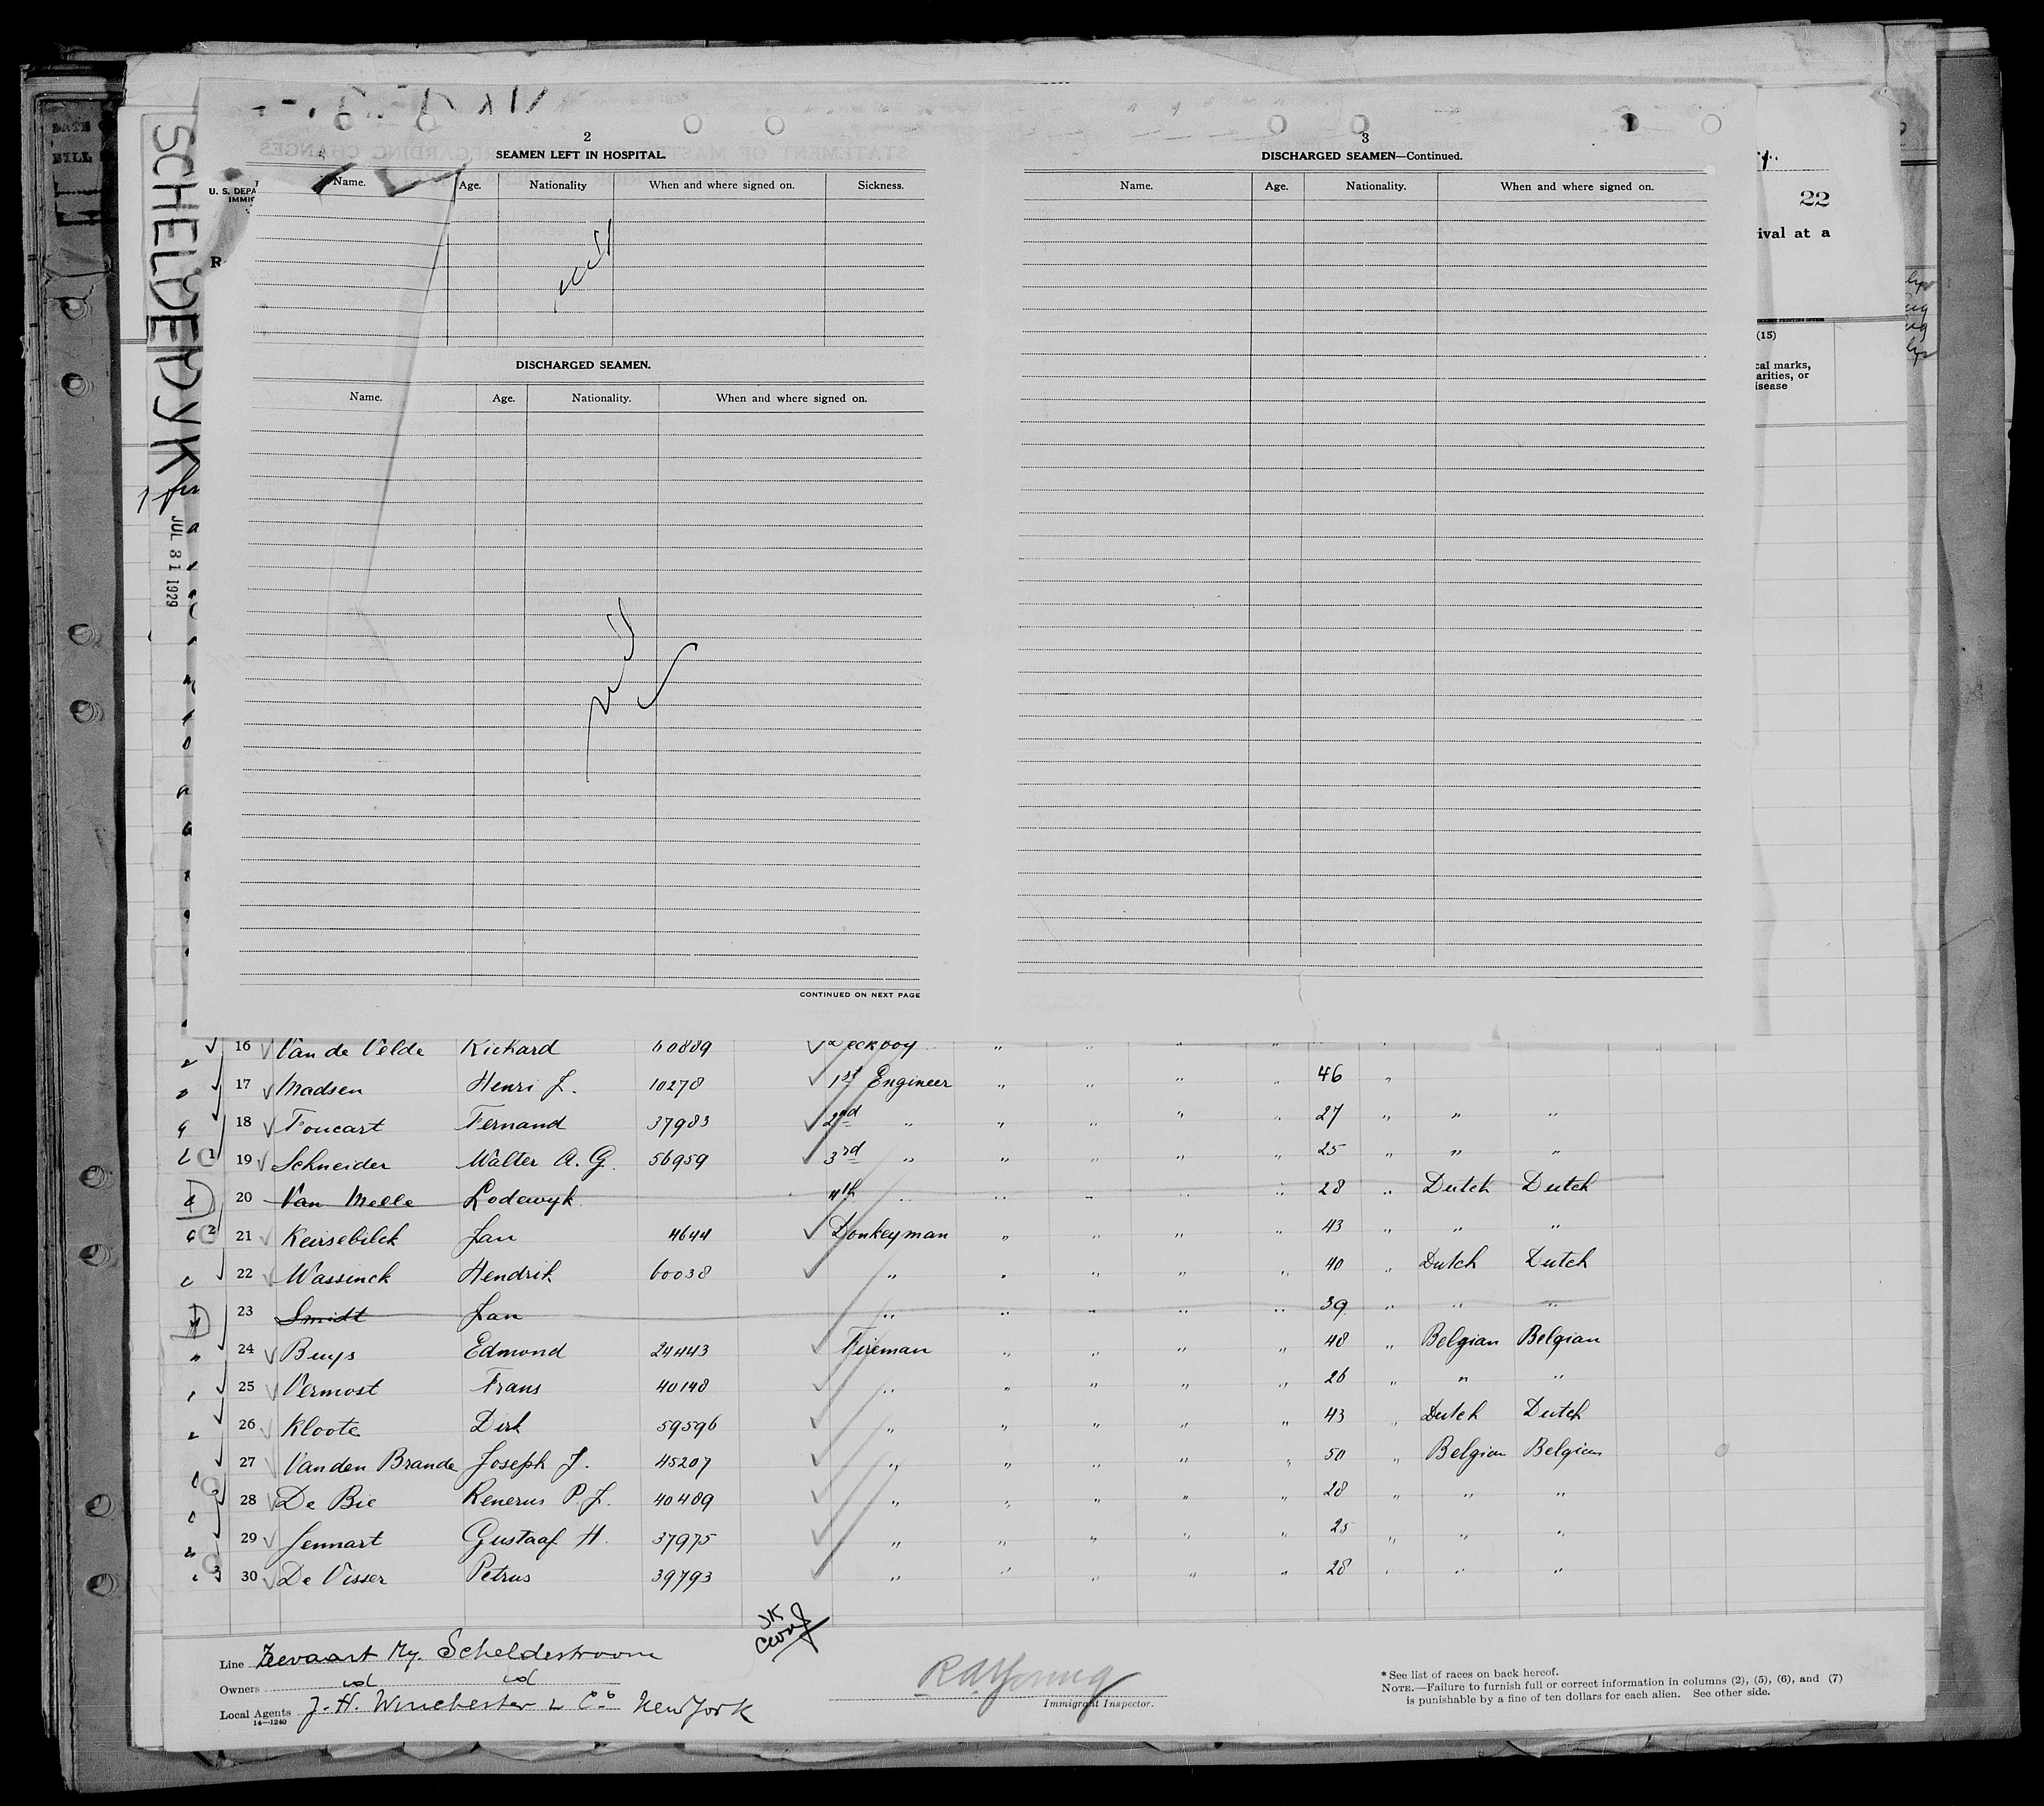 SCHELDEDYK
JUL 31 1929
2
SEAMEN LEFT IN HOSPITAL.
Name. Age. Nationality When and where signed on. Sickness.
DISCHARGED SEAMEN.
Name. Age. Nationality. When and where signed on.
CONTINUED ON NEXT PAGE
3
DISCHARGED SEAMEN—Continued.
Name. Age. Nationality. When and where signed on.
U. S. DEPA
IMMIG
22
ival at a
(15)
cal marks,
arities, or
isease
16 Van de Velde Richard 60889 Deckboy
17 Madsen Henri J. 10278 1st Engineer " " " " 46 "
18 Foucart Fernand 37983 2nd " " " " " 27 " " "
19 Schneider Walter A. G. 56959 3rd " " " " " 25 " " "
20 Van Melle Lodewyk 4th " " " " " 28 " Dutch Dutch
21 Keirsebilck Jan 4644 Donkeyman " " " " 43 " " "
22 Wassinck Hendrik 60038 " " " " " 40 " Dutch Dutch
23 Smidt Jan " " " " " 39 " " "
24 Buys Edmond 24443 Fireman " " " " 48 " Belgian Belgian
25 Vermost Frans 40148 " " " " " 26 " " "
26 Kloote Dirk 59596 " " " " " 43 " Dutch Dutch
27 Van den Brande Joseph J. 45207 " " " " " 50 " Belgian Belgian
28 De Bie Renerus P. J. 40489 " " " " " 28 " " "
29 Jennart Gustaaf H. 37975 " " " " " 25 " " "
30 De Visser Petrus 39793 " " " " " 28 " " "
Line Zeevaart My. Scheldestroom
Owners id id
Local Agents J. H. Winchester & Co. New York
14—1240
R A Young
Immigrant Inspector.
* See list of races on back hereof.
NOTE.—Failure to furnish full or correct information in columns (2), (5), (6), and (7)
is punishable by a fine of ten dollars for each alien. See other side.